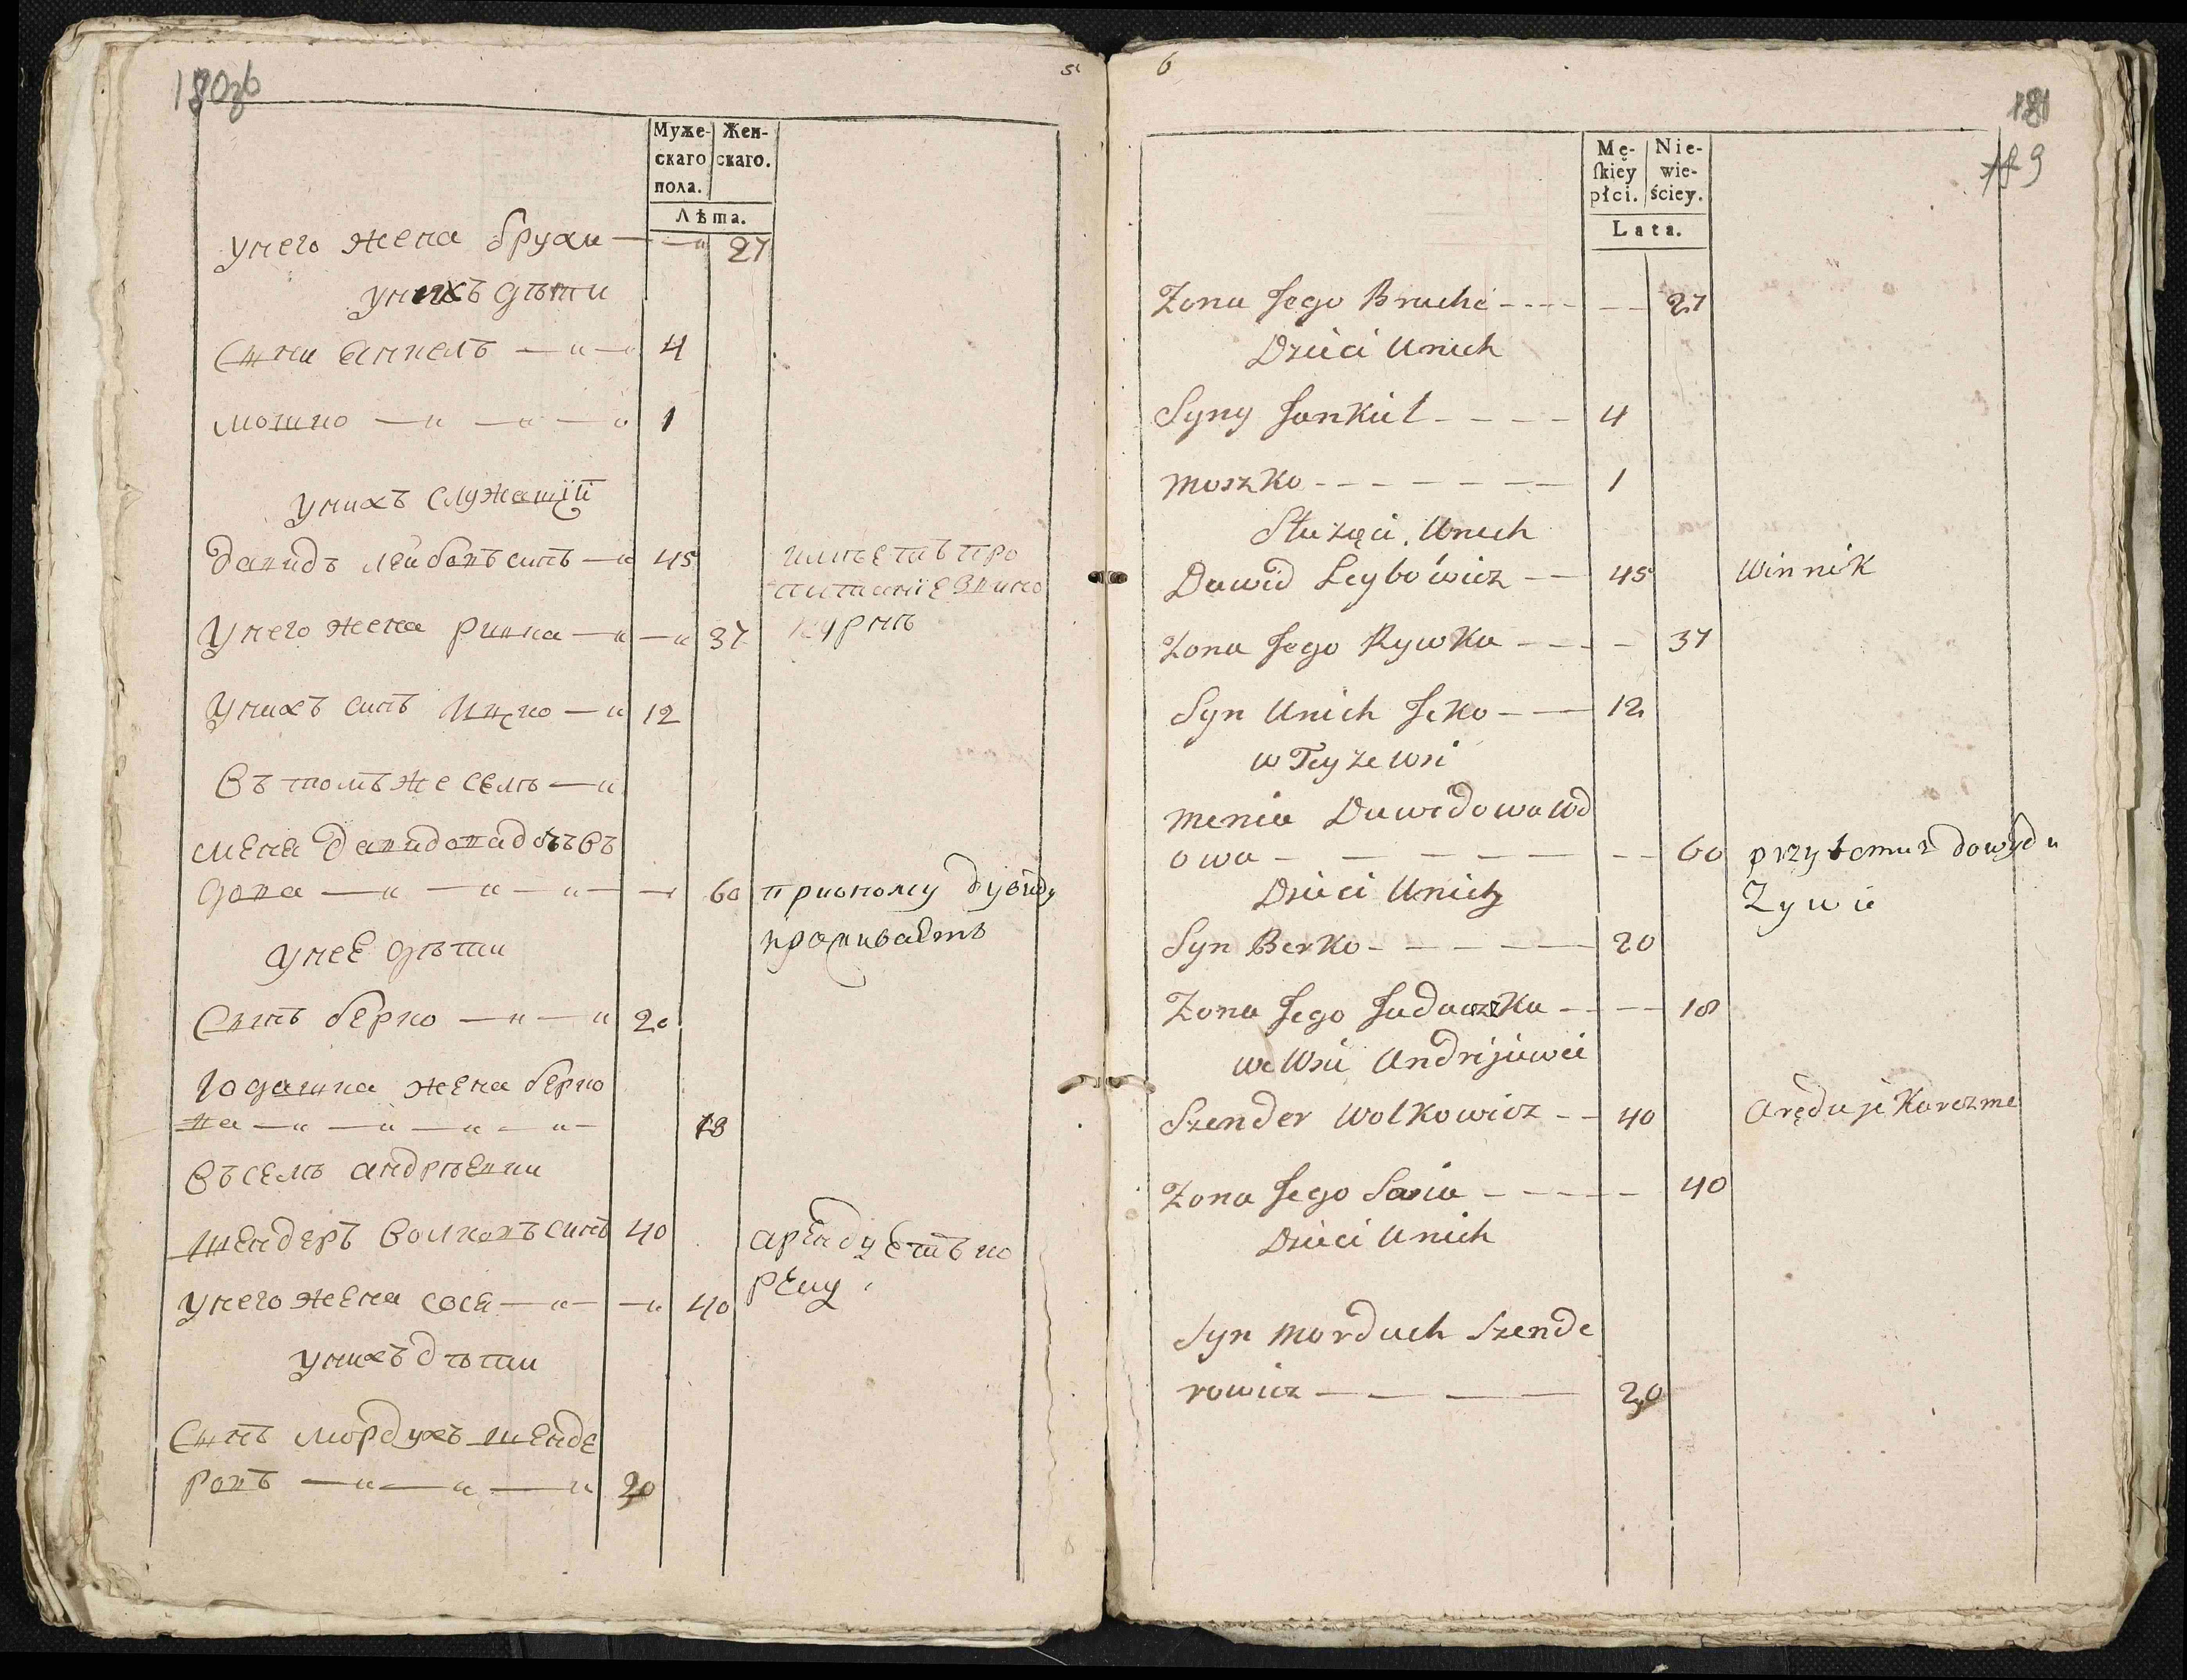 180об
5
Муже-
скаго
пола.
Жен-
скаго.
Лѣта.
Унего жена брухи — — 27
унихъ дѣти
Сыни Янкель — 4
мошко — 1
Унихъ служащїи
Давидъ лейбовъ синъ — 45 имѣетъ про
питанїе вино
Унего жена ривка — — 37 курнѣ
Унихъ синъ Ицко — 12
Въ томъ же селѣ —
меня давидова вд
дова — — — — 60 приономy дувиду
проживаетъ
Унее дѣти
Сынъ берко — — 20
Юдашка жена берко
ва — — — — 18
Въ селѣ андрѣевки
Шендеръ Волковъ синъ 40 арендуетъ ко
рчму
Унего жена сося — — 40
Унихъ дѣти
Сынъ мордухъ шенде
ровъ — — — 20
6
181
9
Mę-
ſkiey
płci.
Nie-
wie-
ściey.
Lata.
Zona Jego Bruche - - - - — — 27
Dzieci Unich
Syny Jankiel - - - - 4
Moszko - - - - - - 1
Służąci Unich
Dawid Leybowicz — — 45 Winnik
Zona Jego Rywka - - - - 37
Syn Unich Jcko - — 12
w Teyże wsi
Menia Dawidowa Wd
owa - — — — — - - 60 przytomuż dowydu
Dzieci Unich Zywie
Syn Berko - - - - — 20
Zona Jego Judaszka - - — 18
we Wsi Andrijiwci
Szender Wolkowicz - - 40 Aręduje Karczme
Zona Jego Sosia - - - - - 40
Dzieci Unich
Syn Morduch Szende
rowicz — — — — 20